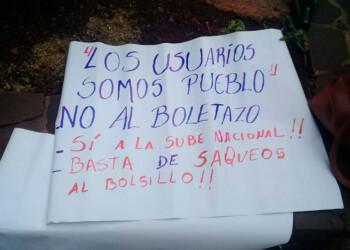 "LOS USUARIOS
SOMOS PUEBLO"
NO AL BOLETAZO
- SÍ A LA SUBE NACIONAL!!
- BASTA DE SAQUEOS
AL BOLSILLO!!